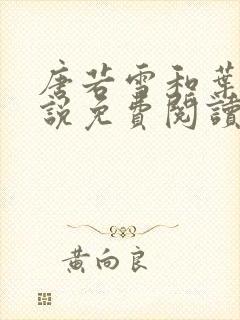 唐若雪和葉
說免費閱讀
黃向良